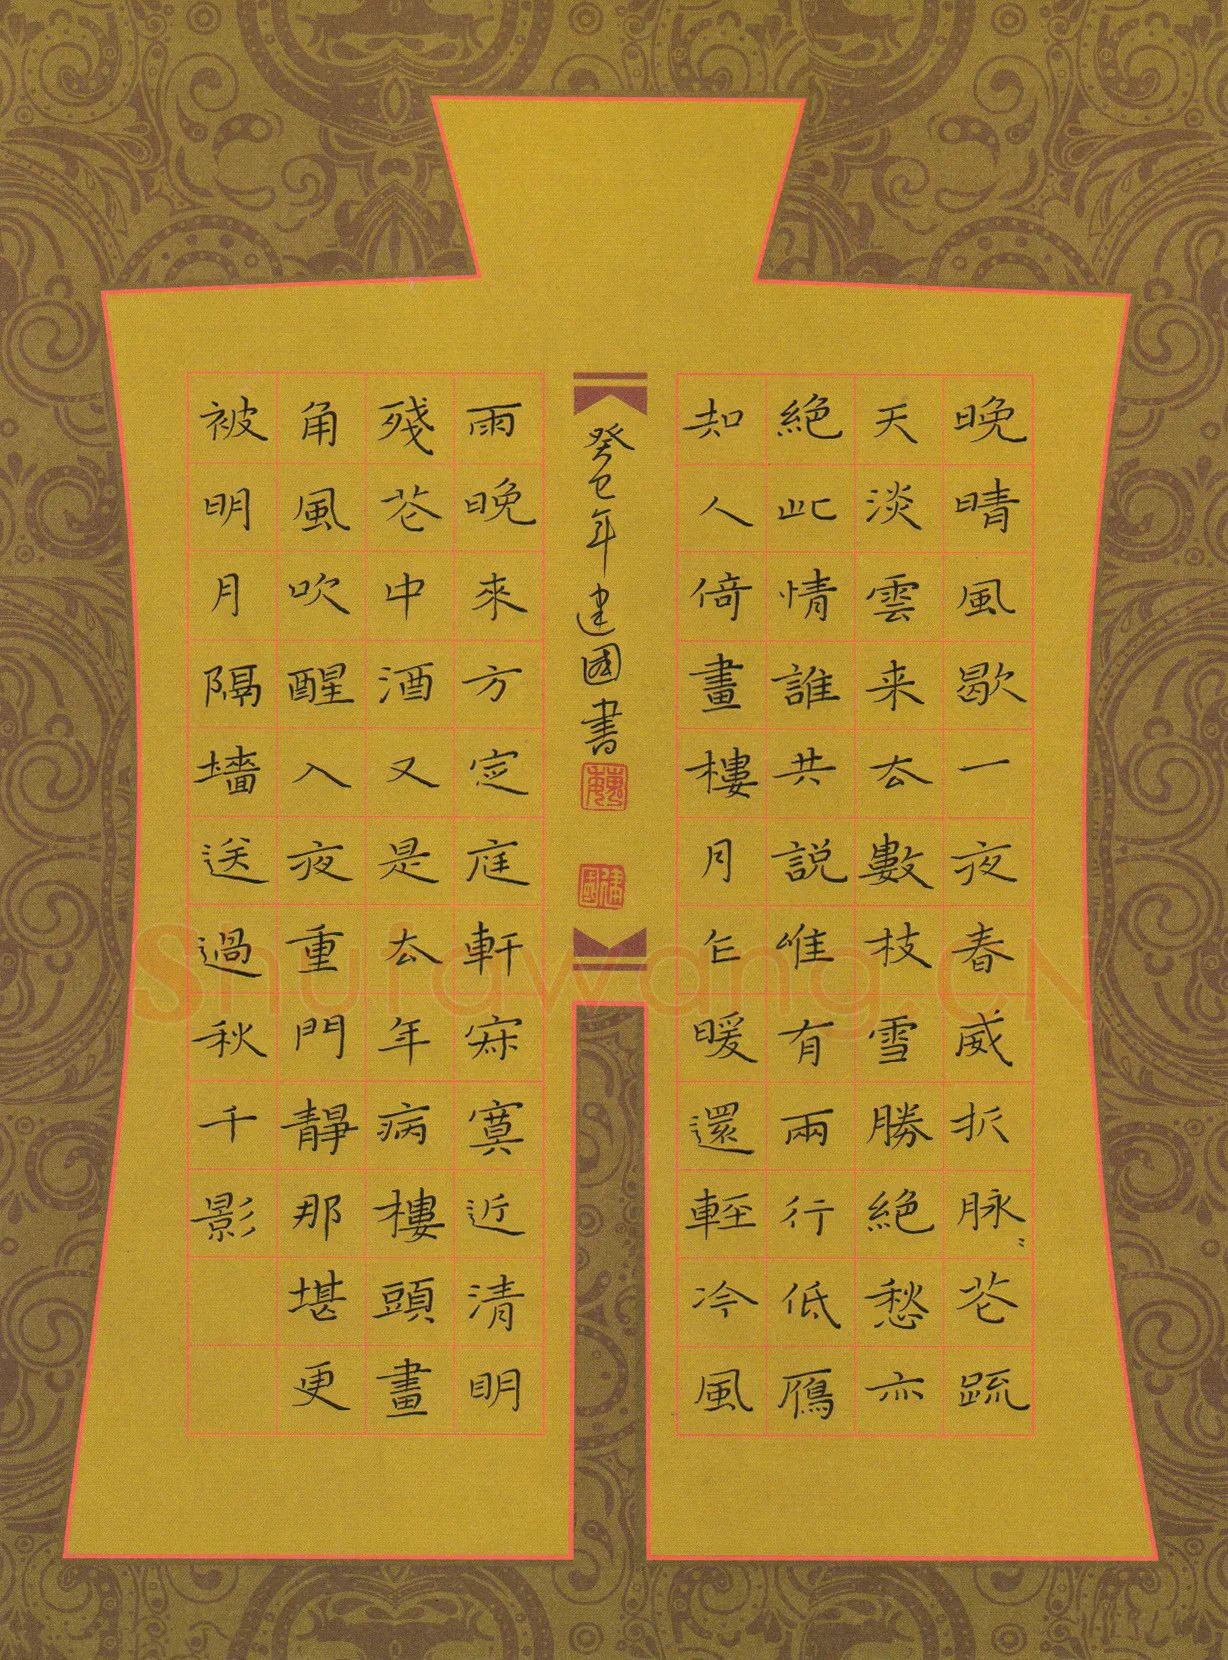 晚晴風歇一夜春威折脉〻花疏
天淡雲来去數枝雪勝絕愁亦
絕此情誰共説唯有兩行低鴈
知人倚畫樓月乍暖還輕冷風
雨晚來方定庭軒寂寞近清明
殘花中酒又是去年病樓頭畫
角風吹醒入夜重門靜那堪更
被明月隔墻送過秋千影
癸巳年建國書
建國
Shufawang.CN